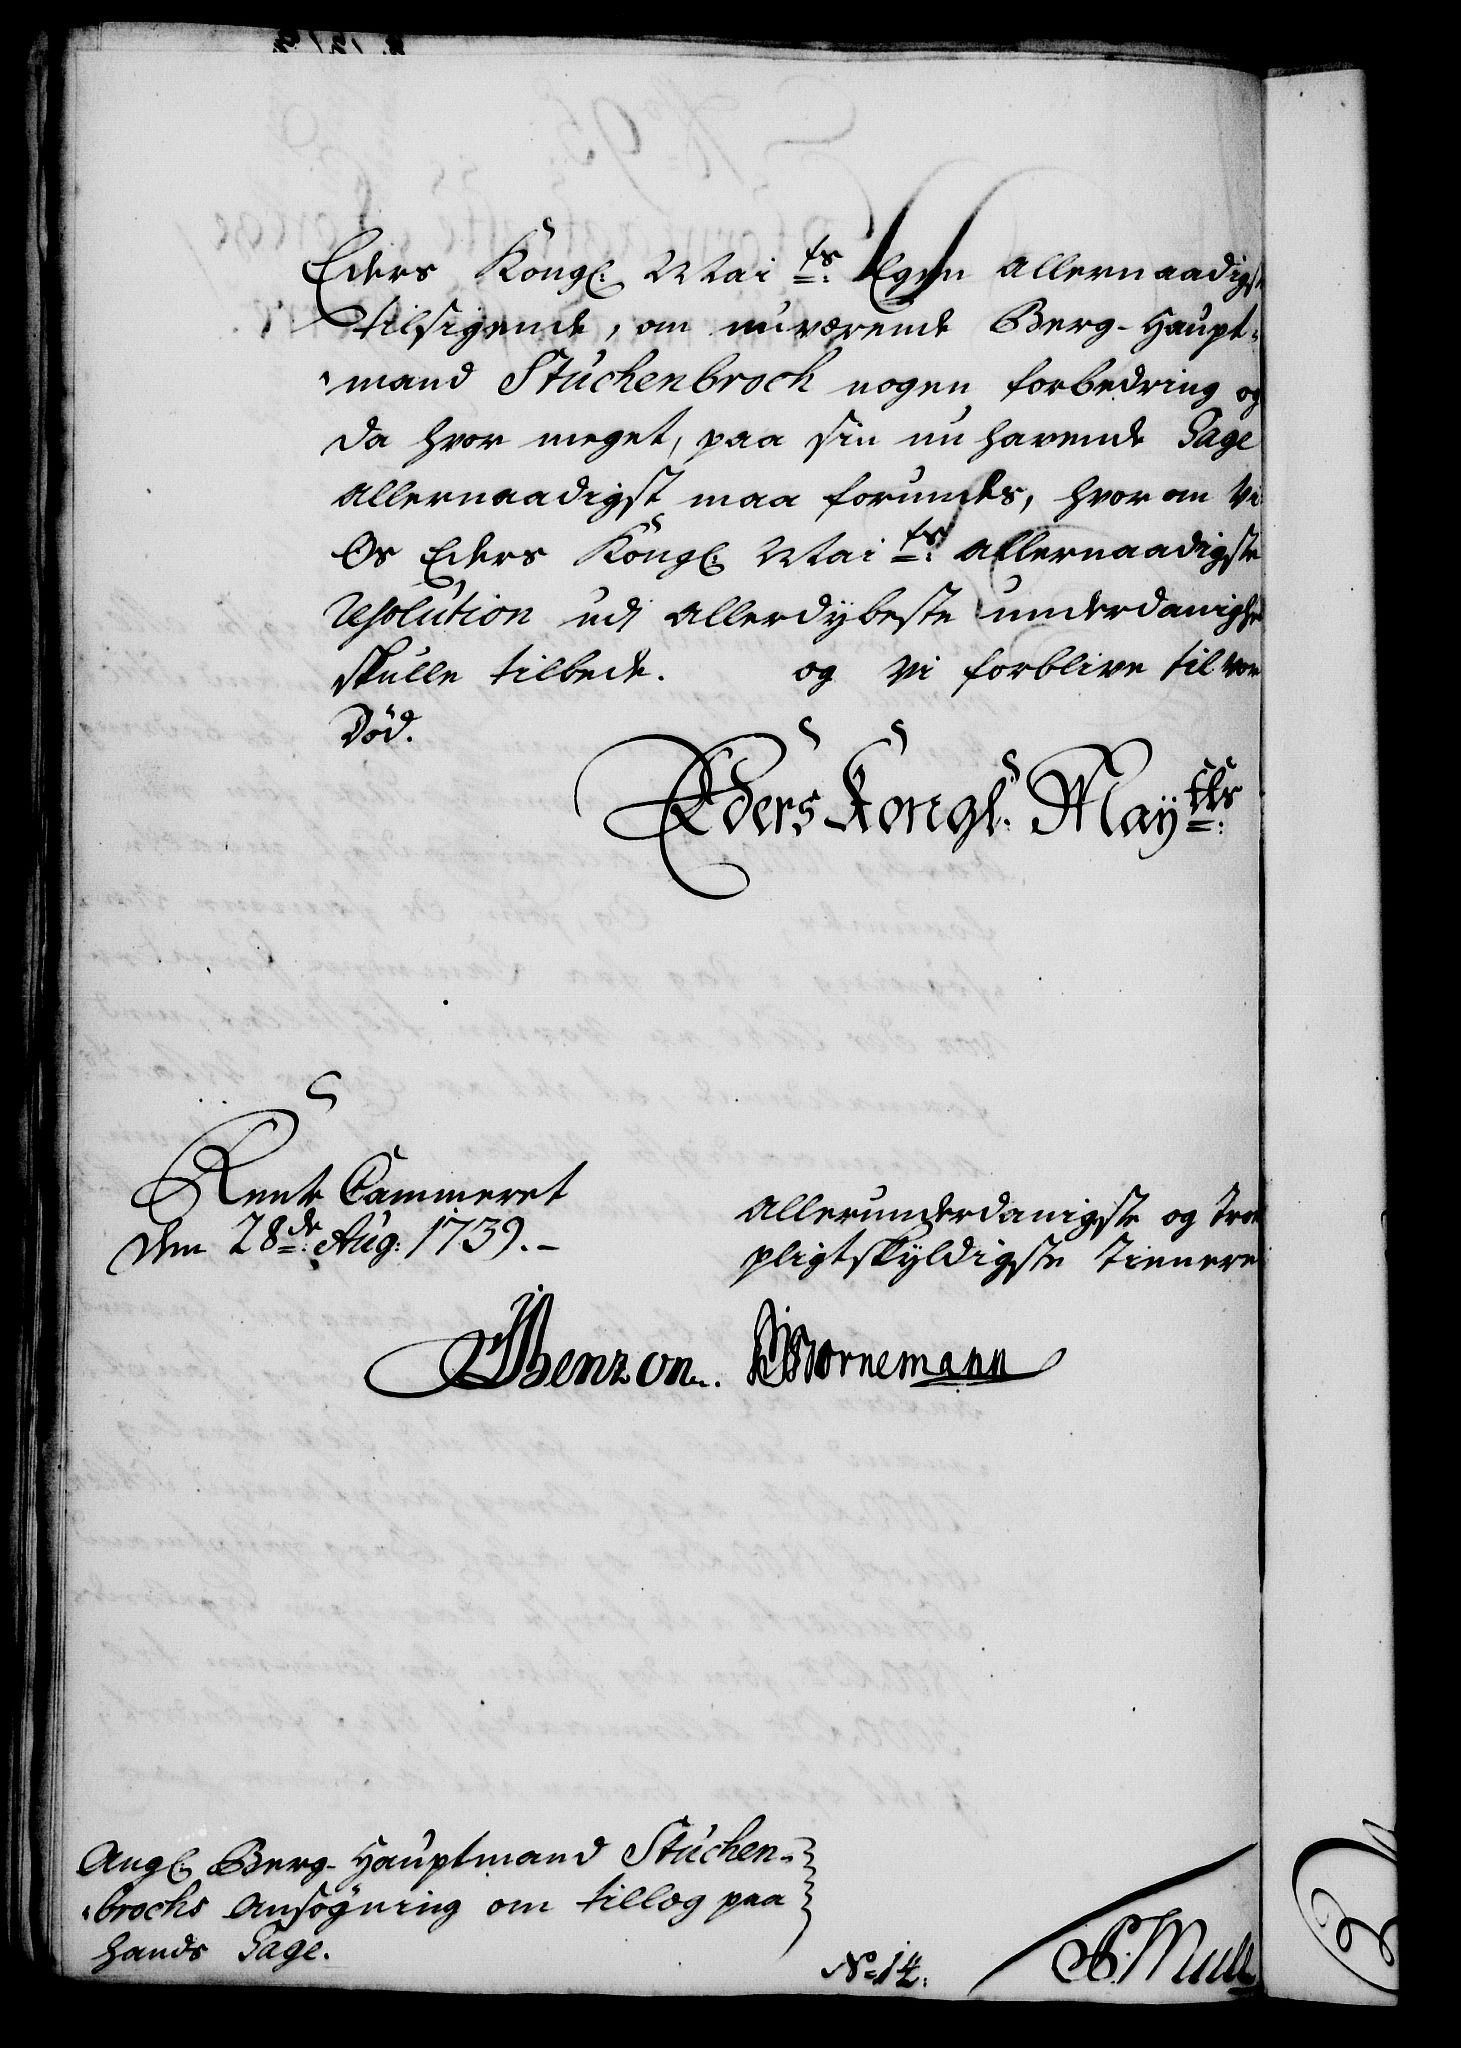 Eders Kongl: Mai ts: Egen allernaadigst
tilsigende, om nuværende Berg-Haupt-
mand Stuckenbrock nogen forbedring og
da hvor meget, paa sin nu havende Gage
allernaadigst maa forundes, hvorom Vi
Os Eders Kongl: Mai ts: allernaadigste
Resolution udi allerdybeste underdanighed
skulle tilbede. og Vi forblive til vor
Død.
Eders Kongl: May tts:
Rente Cammeret
den 28de Aug: 1739.
allerunderdanigste og Troe
pligtskyldigste Tienere
Benzon. Bornemann
Angl: Berg-Hauptmand Stuchen-
brocks Ansøgning om tillæg paa
hands Gage.
No 14.
Mull